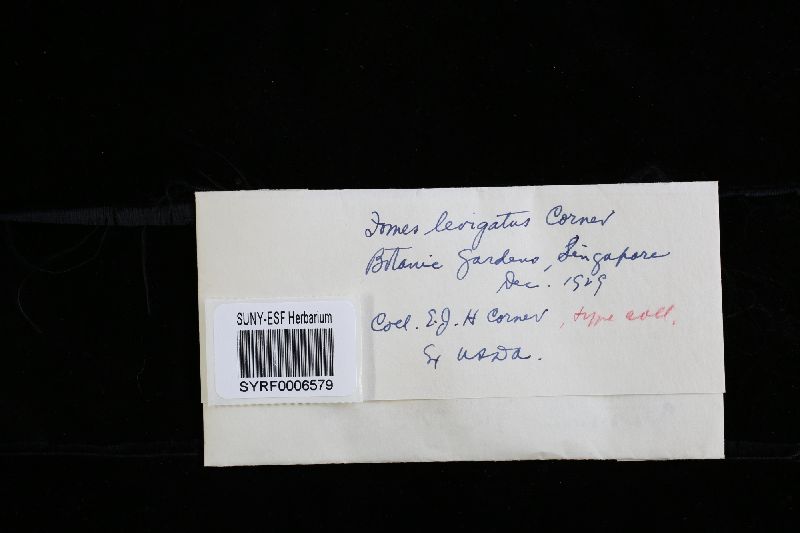 Fomes levigatus Corner
Botanic Gardens, Singapore
Dec. 1929
Coll. E.J.H Corner, type coll.
Ex USDA.
SUNY-ESF Herbarium
SYRF0006579